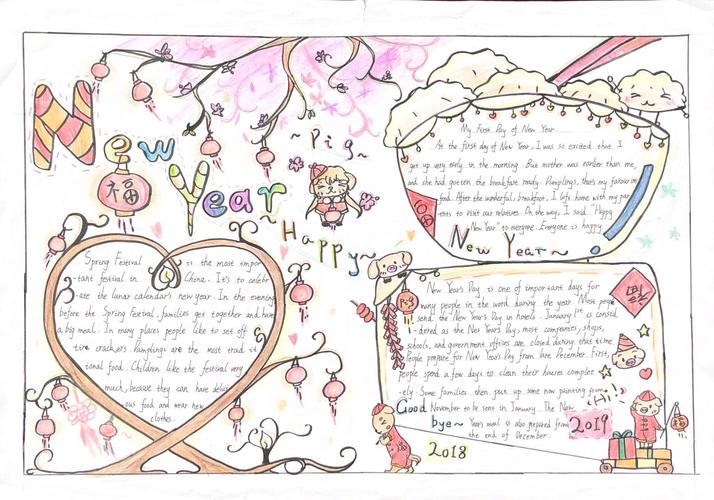 New
Year
福
~ Pig ~
~ Happy ~
Spring Festival is the most impor
-tant festival in China. It's to celebr
-ate the lunar calendar's new year. In the evening
before the Spring Festival, families get together and have
a big meal. In many places people like to set off
fire crackers. Dumplings are the most tradi ti
tonal food. Children like the festival very
much, because they can have delici
ous food and wear new
clothes.
My First Day of New Year
At the first day of New Year, I was so excited that I
got up very early in the morning. But mother was earlier than me,
and she had gotten the breakfast ready. Dumplings, that's my favourite
food. After the wonderful breakfast, I left home with my par
-ents to visit our relatives. On the way, I said "Happy
New Year" to everyone. Everyone is happy.
New Year~
福
New Year's Day is one of important days for
many people in the word during the year. Most people
spend the New Year's Day in hotels. January 1st is consid
-dered as the New Year's Day, most companies, shops,
schools, and government offices are closed during that time.
People prepare for New Year's Day from late December. First,
people spend a few days to clean their houses complet
-ely. Some families then put up some now painting from
November to be sent in January. The New
Year's meal is also prepared from
the end of December.
Pig
福
Good
bye~
2018
Hi!
2019
福